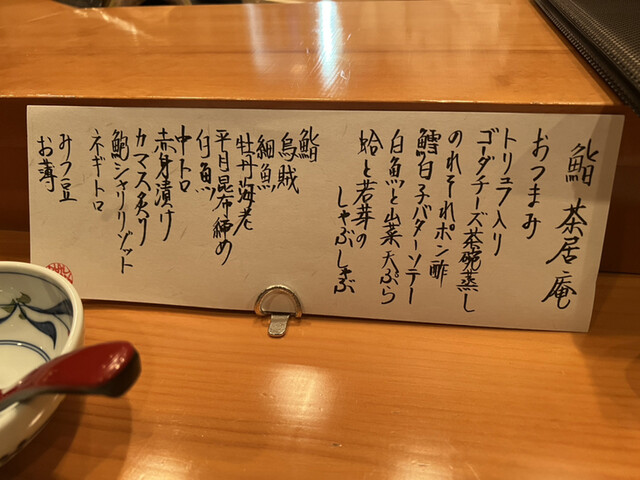 鮨 茶居庵
おつまみ
トリュフ入り
ゴーダチーズ茶碗蒸し
のれそれポン酢
鱈白子バターソテー
白魚と山菜天ぷら
蛤と若芽の
しゃぶしゃぶ
鮨
烏賊
細魚
牡丹海老
平目昆布締め
白魚
中トロ
赤身漬け
カマス炙り
鮑シャリリゾット
ネギトロ
みつ豆
お薄